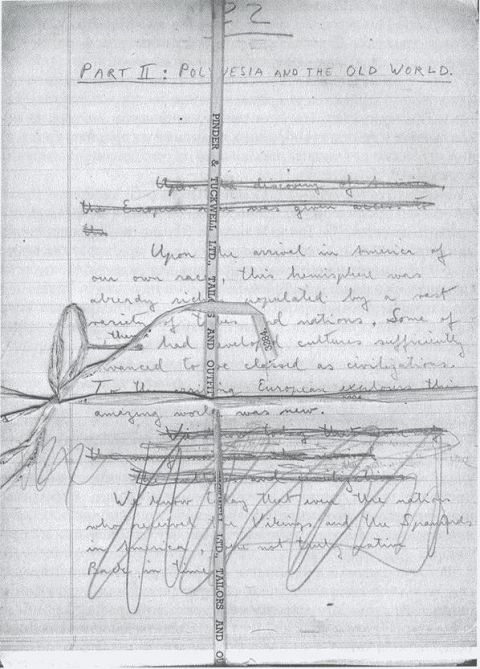 22
PART II: POLYNESIA AND THE OLD WORLD.
Upon discovery of America,
the European was given access to
the
Upon the arrival in America of
our own race, this hemisphere was
already populated by a vast
variety of tribes and nations. Some of
them had developed cultures sufficiently
advanced to be classed as civilizations.
To the European explorers this
amazing world was new.
We know today that
the
the and
We know today that even the nations
who received the Vikings and the Spaniards
in America, were not truly native
Back in time
PINDER & TUCKWELL LTD., TAILORS AND OUTFIT
LTD., TAILORS AND OU